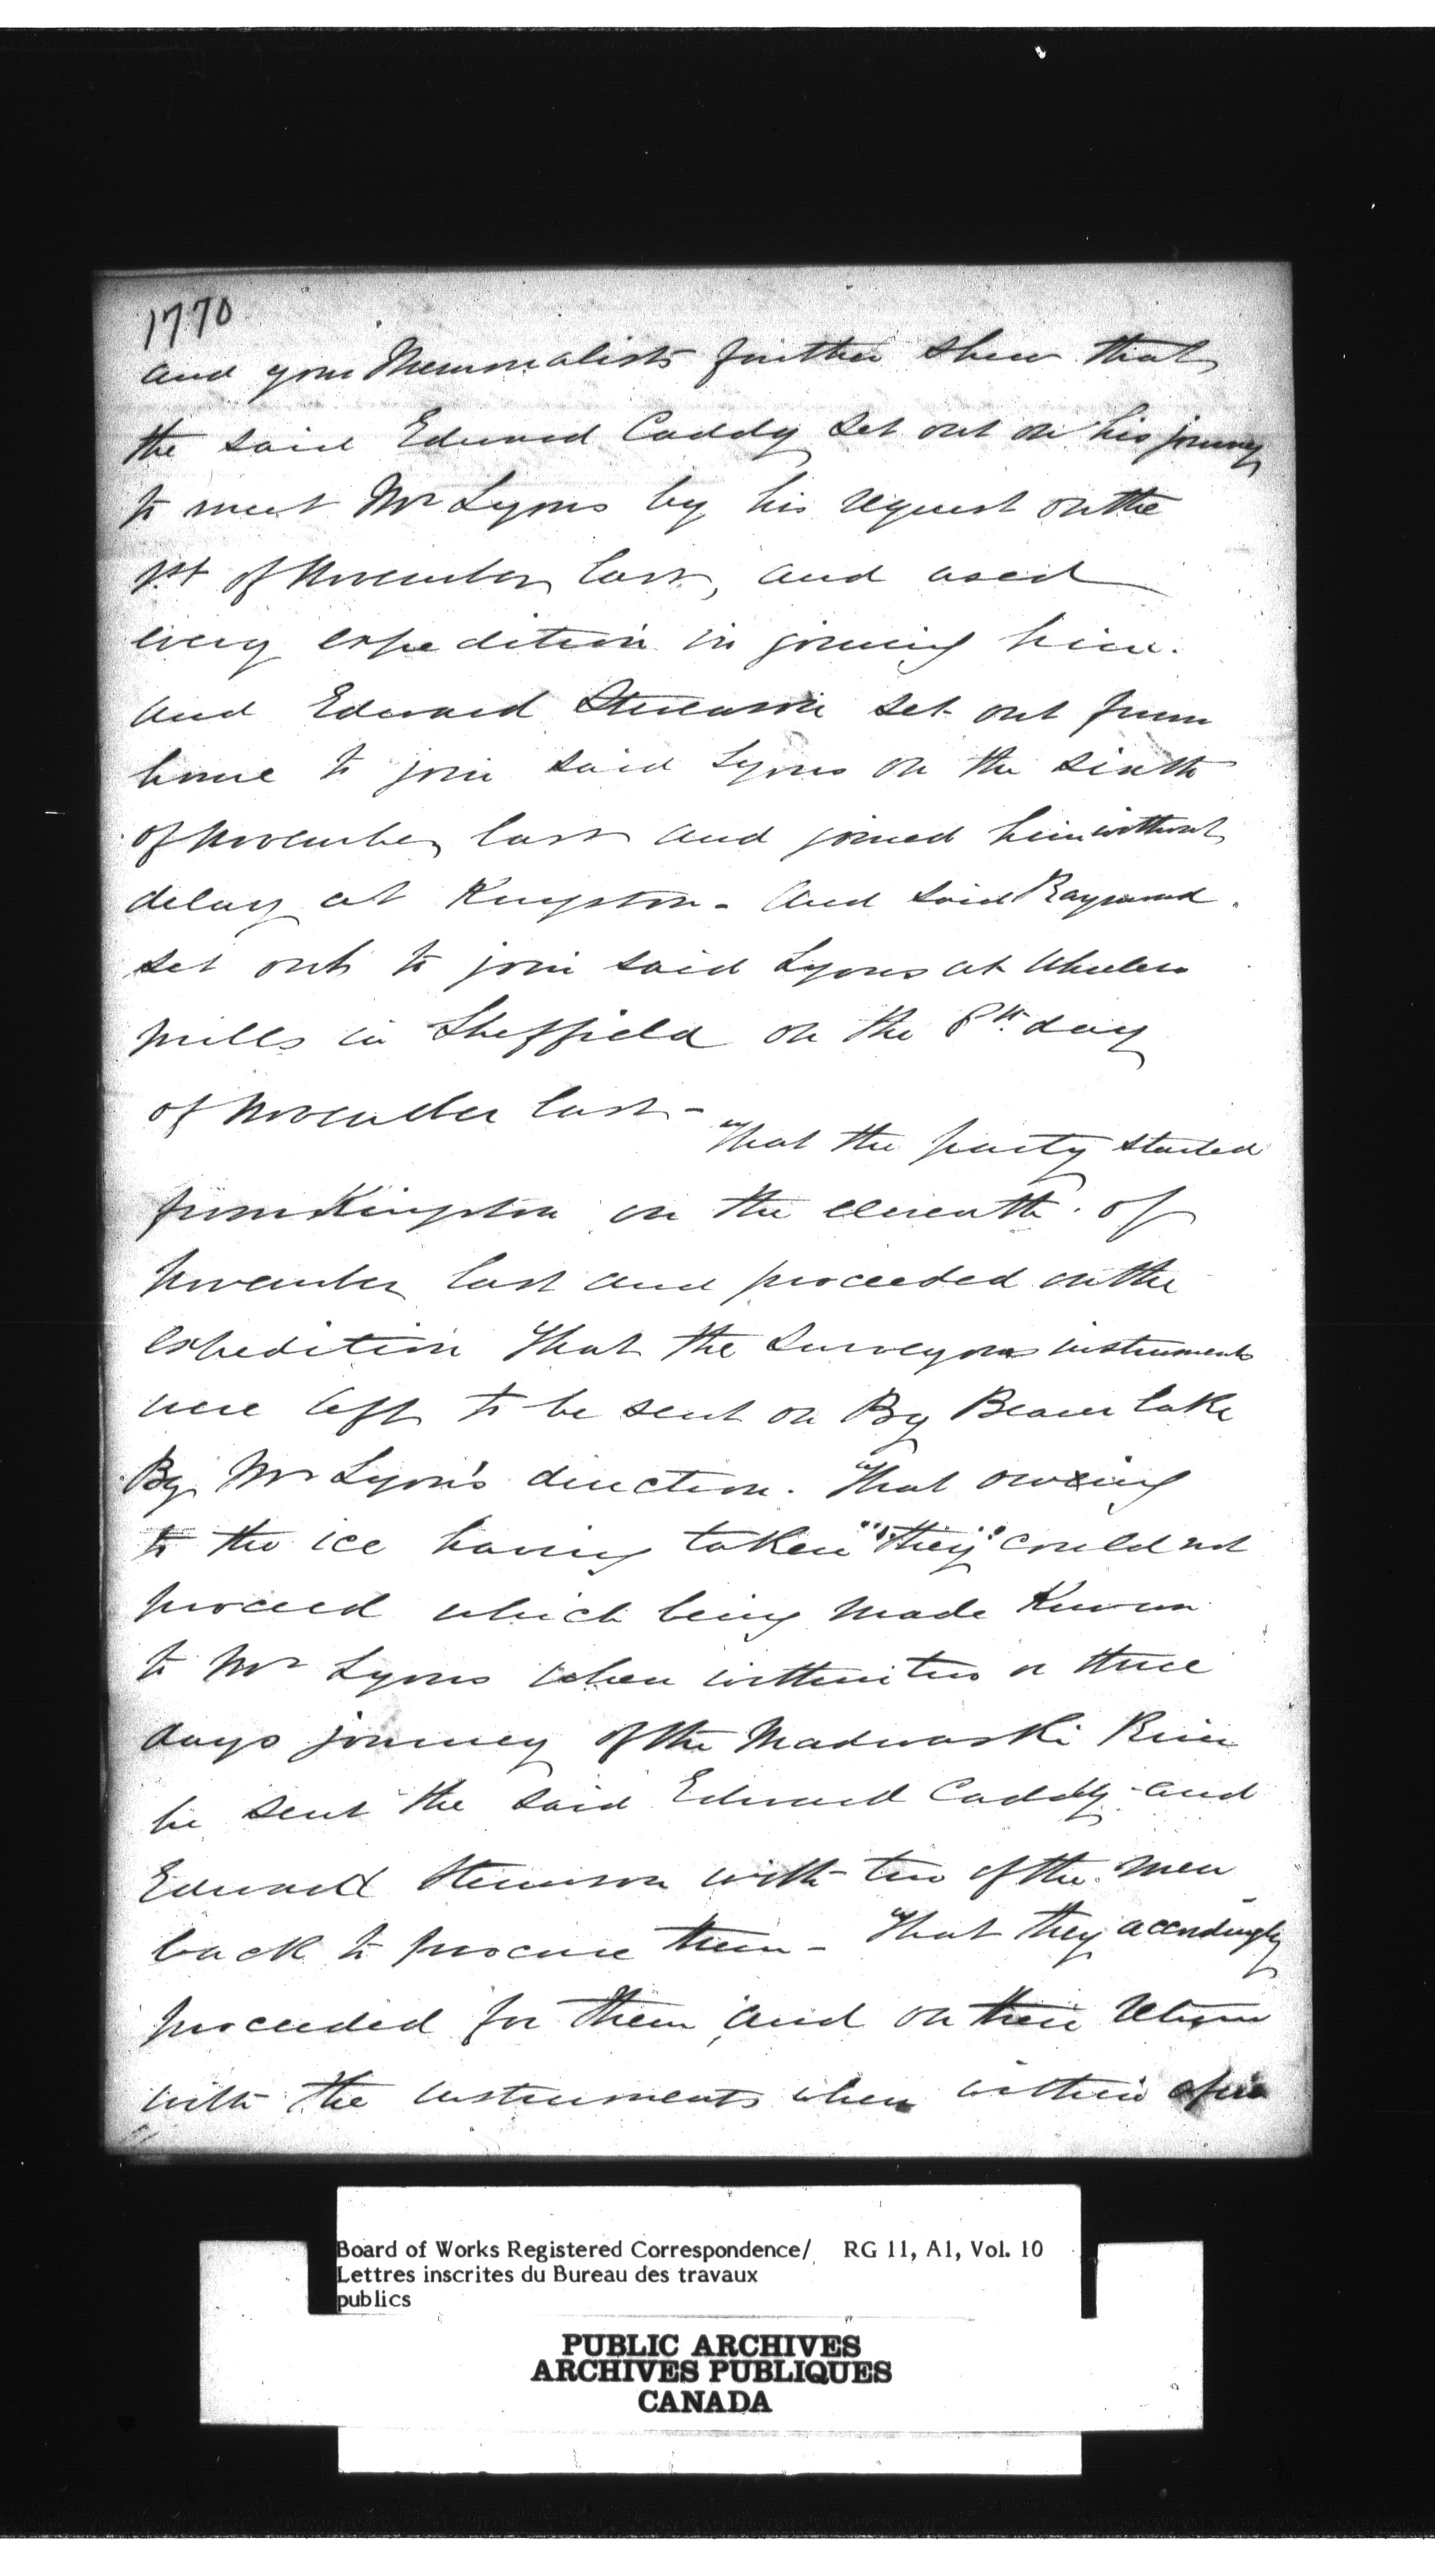 1770
and your Memorialists further shew that
the said Edward Caddy set out on his journey
to meet Mr Lyons by his request on the
1st of November last, and used
every expedition in joining him.
and Edward Stevenson set out from
home to join said Lyons on the sixth
of November last and joined him without
delay at Kingston - And said Raymond
set out to join said Lyons at Wheelers
mills in Sheffield on the 8th day
of November last -
That the party started
from Kingston on the eleventh of
November last and proceeded on the
expedition That the Surveyors instruments
were left to be sent on By Beaver lake
By Mr Lyon's direction. That owing
to the ice having taken "they" could not
proceed which being made Known
to Mr Lyons when within two or three
days journey of the Madwaski River
he sent the said Edward Caddy and
Edward Stevenson with two of the men
back to procure them - That they accordingly
proceeded for them, and on their return
with the instruments when within
Board of Works Registered Correspondence/ RG 11, A1, Vol. 10
Lettres inscrites du Bureau des travaux
publics
PUBLIC ARCHIVES
ARCHIVES PUBLIQUES
CANADA